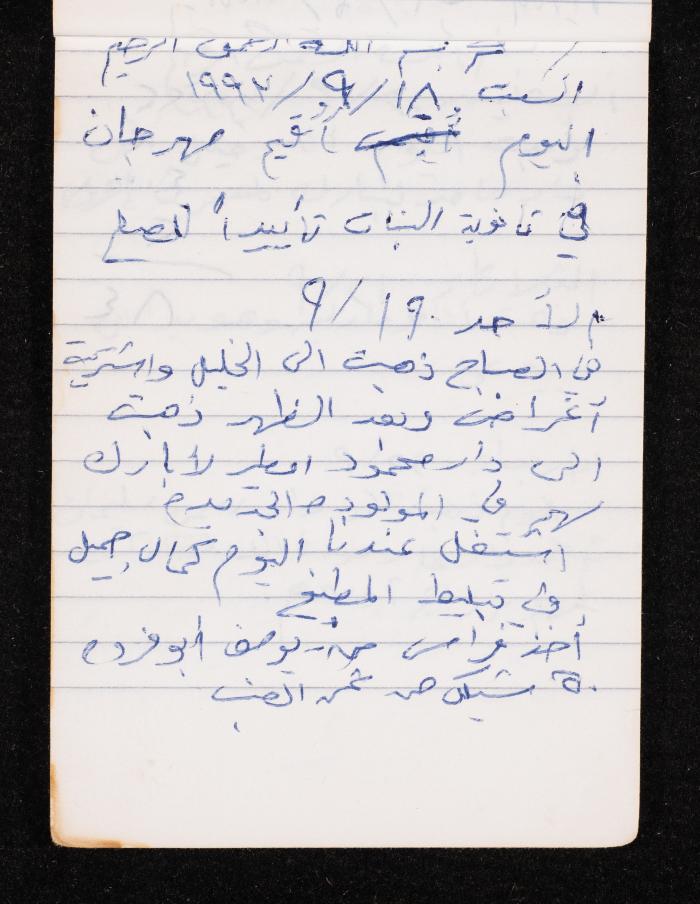 بسم الله الرحمن الرحيم
السبت ١٨/٩/١٩٩٣
اليوم أقيم مهرجان
في ثانوية البنات تأييداً للصلح
الأحد ١٩/٩
في الصباح ذهبت الى الخليل واشتريت
أغراض وبعد الظهر ذهبت
الى دار محمود امطير لأبارك
لهم في المولوده الجديدة
اشتغل عندنا اليوم كمال جميل
في تبليط المطبخ
أخذ فراس من يوسف أبو فرده
٥٠ شيكل من ثمن العنب